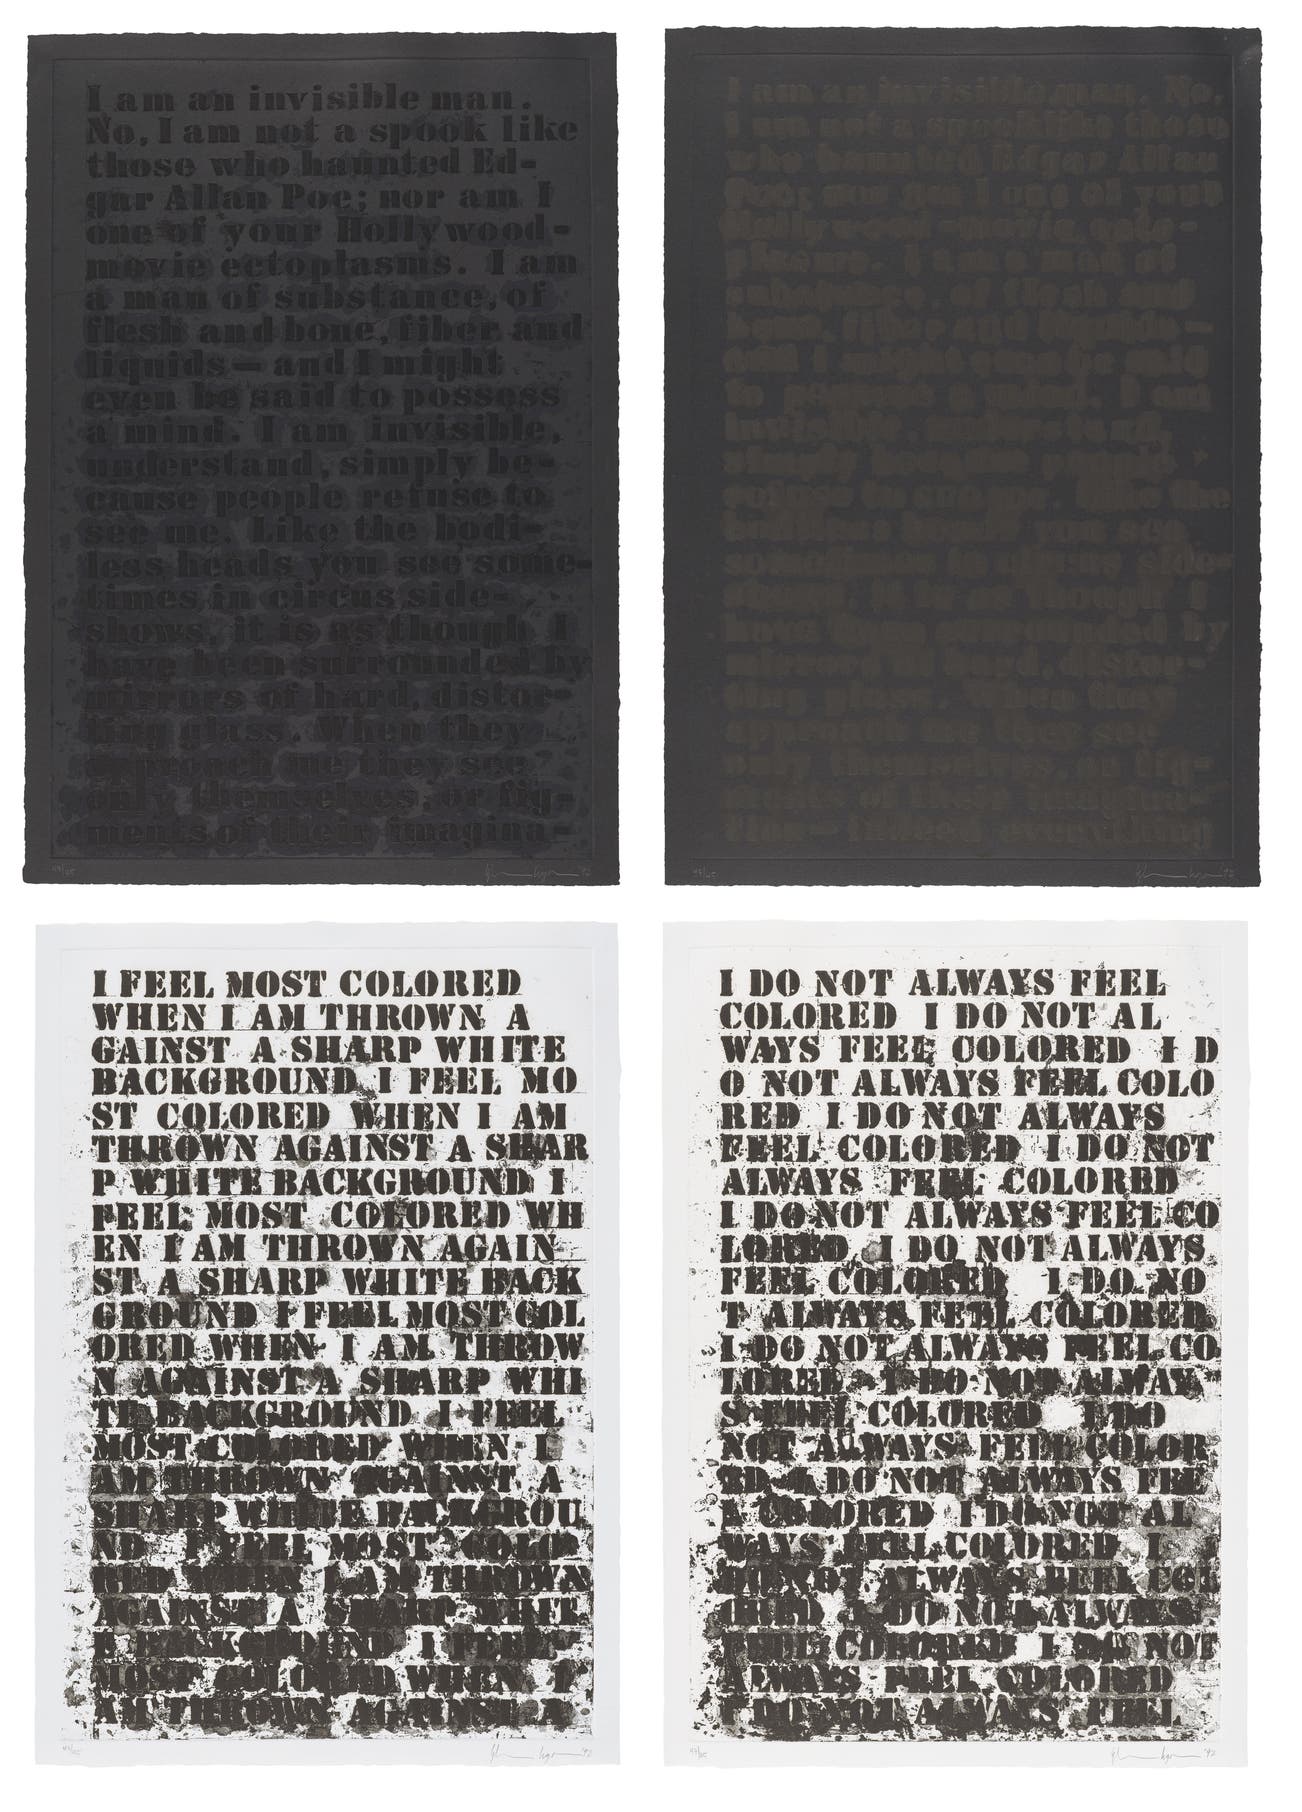 I am an invisible man.
No, I am not a spook like
those who haunted Ed-
gar Allan Poe; nor am I
one of your Hollywood-
movie ectoplasms. I am
a man of substance, of
flesh and bone, fiber and
liquids — and I might
even be said to possess
a mind. I am invisible,
understand, simply be-
cause people refuse to
see me. Like the bodi-
less heads you see some-
times in circus side-
shows, it is as though I
have been surrounded by
mirrors of hard, distor-
ting glass. When they
approach me they see
only themselves, or fig-
ments of their imagina-
I am an invisible man. No,
I am not a spook like those
who haunted Edgar Allan
Poe; nor am I one of your
Hollywood-movie ecto-
plasms. I am a man of
substance, of flesh and
bone, fiber and liquids—
and I might even be said
to possess a mind. I am
invisible, understand,
simply because people
refuse to see me. Like the
bodiless heads you see
sometimes in circus side-
shows, it is as though I
have been surrounded by
mirrors of hard, distor-
ting glass. When they
approach me they see
only themselves, or fig-
ments of their imagina-
tion— indeed, everything
I FEEL MOST COLORED
WHEN I AM THROWN A
GAINST A SHARP WHITE
BACKGROUND I FEEL MO
ST COLORED WHEN I AM
THROWN AGAINST A SHAR
P WHITE BACKGROUND I
FEEL MOST COLORED WH
EN I AM THROWN AGAIN
ST A SHARP WHITE BACK
GROUND I FEEL MOST COL
ORED WHEN I AM THROW
N AGAINST A SHARP WHI
TE BACKGROUND I FEEL
MOST COLORED WHEN I
AM THROWN AGAINST A
SHARP WHITE BACKGROU
ND I FEEL MOST COLO
RED WHEN I AM THROWN
AGAINST A SHARP WHIT
E BACKGROUND I FEEL
MOST COLORED WHEN I
AM THROWN AGAINST A
I DO NOT ALWAYS FEEL
COLORED I DO NOT AL
WAYS FEEL COLORED I D
O NOT ALWAYS FEEL COLO
RED I DO NOT ALWAYS
FEEL COLORED I DO NOT
ALWAYS FEEL COLORED
I DO NOT ALWAYS FEEL CO
LORED I DO NOT ALWAYS
FEEL COLORED I DO NO
T ALWAYS FEEL COLORED
I DO NOT ALWAYS FEEL CO
LORED I DO NOT ALWAY
S FEEL COLORED I DO
NOT ALWAYS FEEL COLOR
ED I DO NOT ALWAYS FEE
L COLORED I DO NOT AL
WAYS FEEL COLORED I
DO NOT ALWAYS FEEL COL
ORED I DO NOT ALWAYS
FEEL COLORED I DO NOT
ALWAYS FEEL COLORED
I DO NOT ALWAYS FEEL